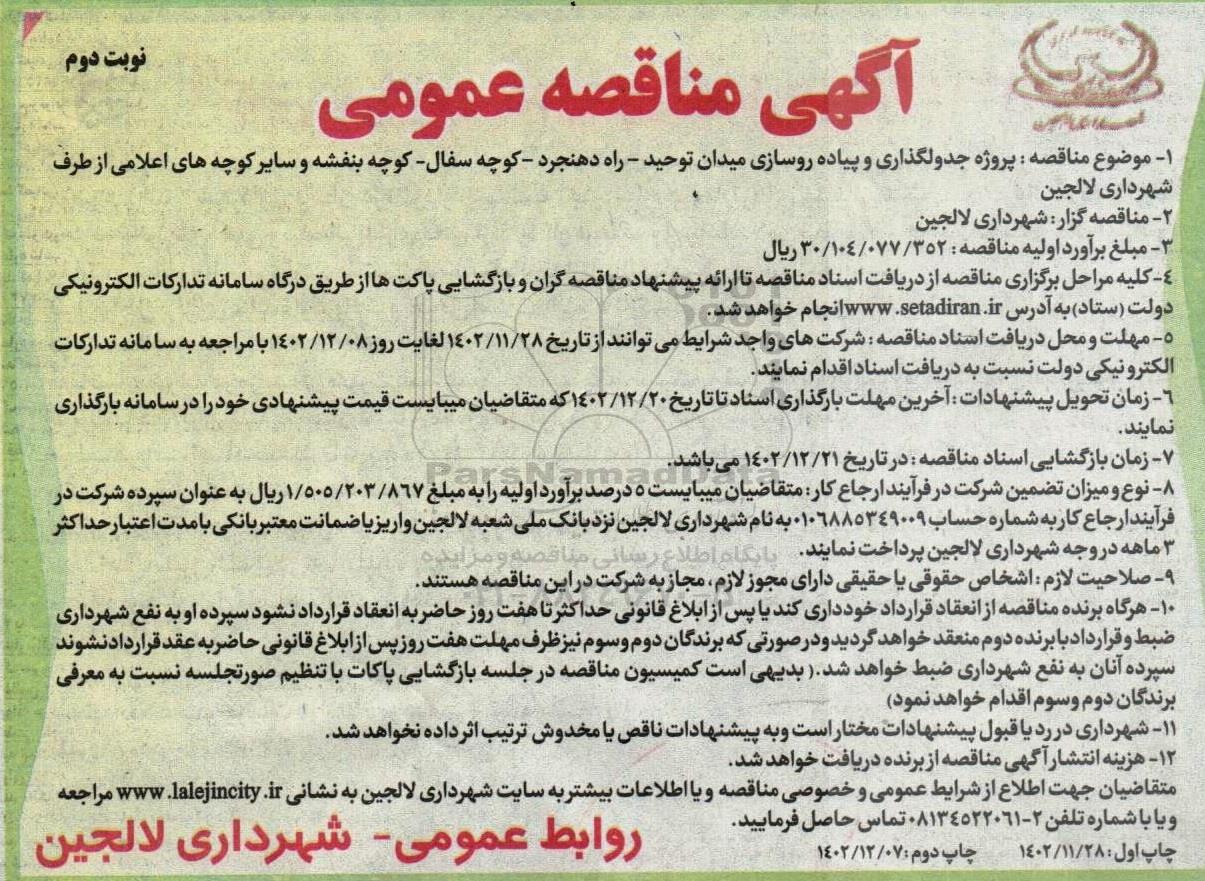 نوبت دوم
آگهی مناقصه عمومی
۱- موضوع مناقصه : پروژه جدولگذاری و پیاده روسازی میدان توحید – راه دهنجرد –کوچه سفال- کوچه بنفشه و سایر کوچه های اعلامی از طرف
شهرداری لالجین
۲- مناقصه گزار : شهرداری لالجین
۳- مبلغ برآورد اولیه مناقصه : ۳۰/۱۰۴/۰۷۷/۳۵۲ ریال
۴-کلیه مراحل برگزاری مناقصه از دریافت اسناد مناقصه تا ارائه پیشنهاد مناقصه گران و بازگشایی پاکت ها از طریق درگاه سامانه تدارکات الکترونیکی
دولت (ستاد) به آدرس www .setadiran.ir انجام خواهد شد .
۵- مهلت و محل دریافت اسناد مناقصه : شرکت های واجد شرایط می توانند از تاریخ ۱۴۰۲/۱۱/۲۸ لغایت روز ۱۴۰۲/۱۲/۰۸ با مراجعه به سامانه تدارکات
الکترونیکی دولت نسبت به دریافت اسناد اقدام نمایند .
۶- زمان تحویل پیشنهادات : آخرین مهلت بارگذاری اسناد تا تاریخ ۱۴۰۲/۱۲/۲۰ که متقاضیان میبایست قیمت پیشنهادی خود را در سامانه بارگذاری
نمایند.
۷- زمان بازگشایی اسناد مناقصه : در تاریخ ۱۴۰۲/۱۲/۲۱ می باشد.
۸- نوع و میزان تضمین شرکت در فرآیند ارجاع کار : متقاضیان میبایست ۵ درصد برآورد اولیه را به مبلغ ۱/۵۰۵/۲۰۳/۸۶۷ ریال به عنوان سپرده شرکت در
فرآیند ارجاع کار به شماره حساب ۰۱۰۶۸۸۵۳۴۹۰۰۹ به نام شهرداری لالجین نزد بانک ملی شعبه لالجین واریز یا ضمانت معتبر بانکی با مدت اعتبار حداکثر
۳ ماهه در وجه شهرداری لالجین پرداخت نمایند.
۹- صلاحیت لازم : اشخاص حقوقی یا حقیقی دارای مجوز لازم ، مجاز به شرکت در این مناقصه هستند.
۱۰- هرگاه برنده مناقصه از انعقاد قرارداد خودداری کند یا پس از ابلاغ قانونی حداکثر تا هفت روز حاضر به انعقاد قرارداد نشود سپرده او به نفع شهرداری
ضبط و قرارداد با برنده دوم منعقد خواهد گردید و در صورتی که برندگان دوم و سوم نیز ظرف مهلت هفت روز پس از ابلاغ قانونی حاضر به عقد قرارداد نشوند
سپرده آنان به نفع شهرداری ضبط خواهد شد.( بدیهی است کمیسیون مناقصه در جلسه بازگشایی پاکات با تنظیم صورتجلسه نسبت به معرفی
برندگان دوم و سوم اقدام خواهد نمود)
۱۱- شهرداری در رد یا قبول پیشنهادات مختار است و به پیشنهادات ناقص یا مخدوش ترتیب اثر داده نخواهد شد.
۱۲- هزینه انتشار آگهی مناقصه از برنده دریافت خواهد شد.
متقاضیان جهت اطلاع از شرایط عمومی و خصوصی مناقصه و یا اطلاعات بیشتر به سایت شهرداری لالجین به نشانی www .lalejincity.ir مراجعه
و یا با شماره تلفن ۲-۰۸۱۳۴۵۲۲۰۶۱ تماس حاصل فرمایید.
چاپ اول : ۱۴۰۲/۱۱/۲۸ چاپ دوم : ۱۴۰۲/۱۲/۰۷
روابط عمومی- شهرداری لالجین
ParsNamadData
پایگاه اطلاع رسانی مناقصه و مزایده